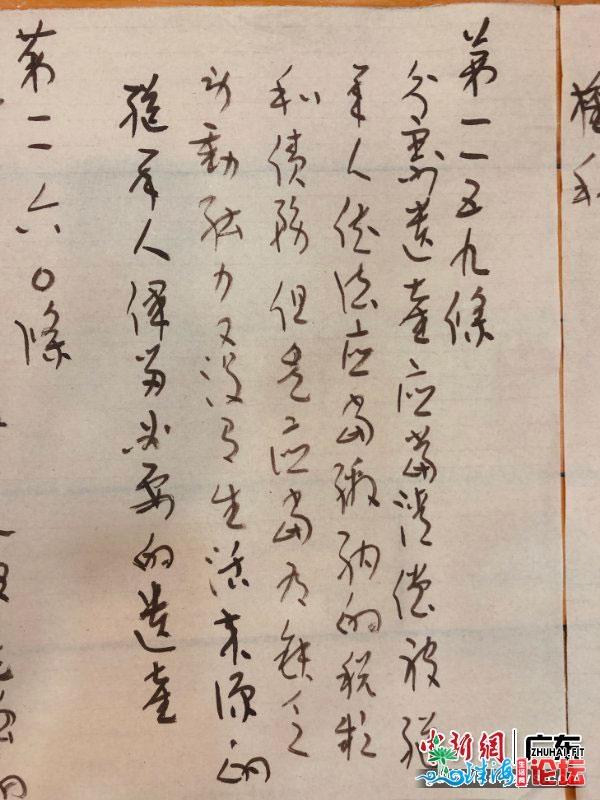 第一一五九條
分割遺產应當清償被繼
承人依法应當繳納的税款
和債務但是应當為缺乏
勞動能力又沒有生活來源的
繼承人保留必要的遺產
第一一六〇條
中新網
广东
ZHUHAI.FIT
珠海
论坛